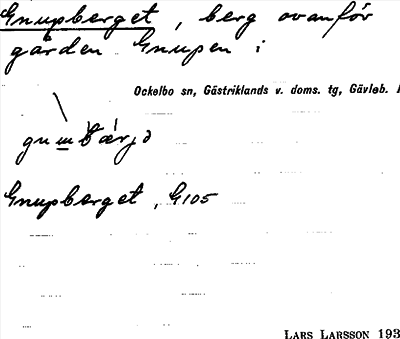 Gnupberget, berg ovanför
gården Gnupen i
Ockelbo sn, Gästriklands v. doms. tg, Gävleb.
Gnupberget, G105
LARS LARSSON 193